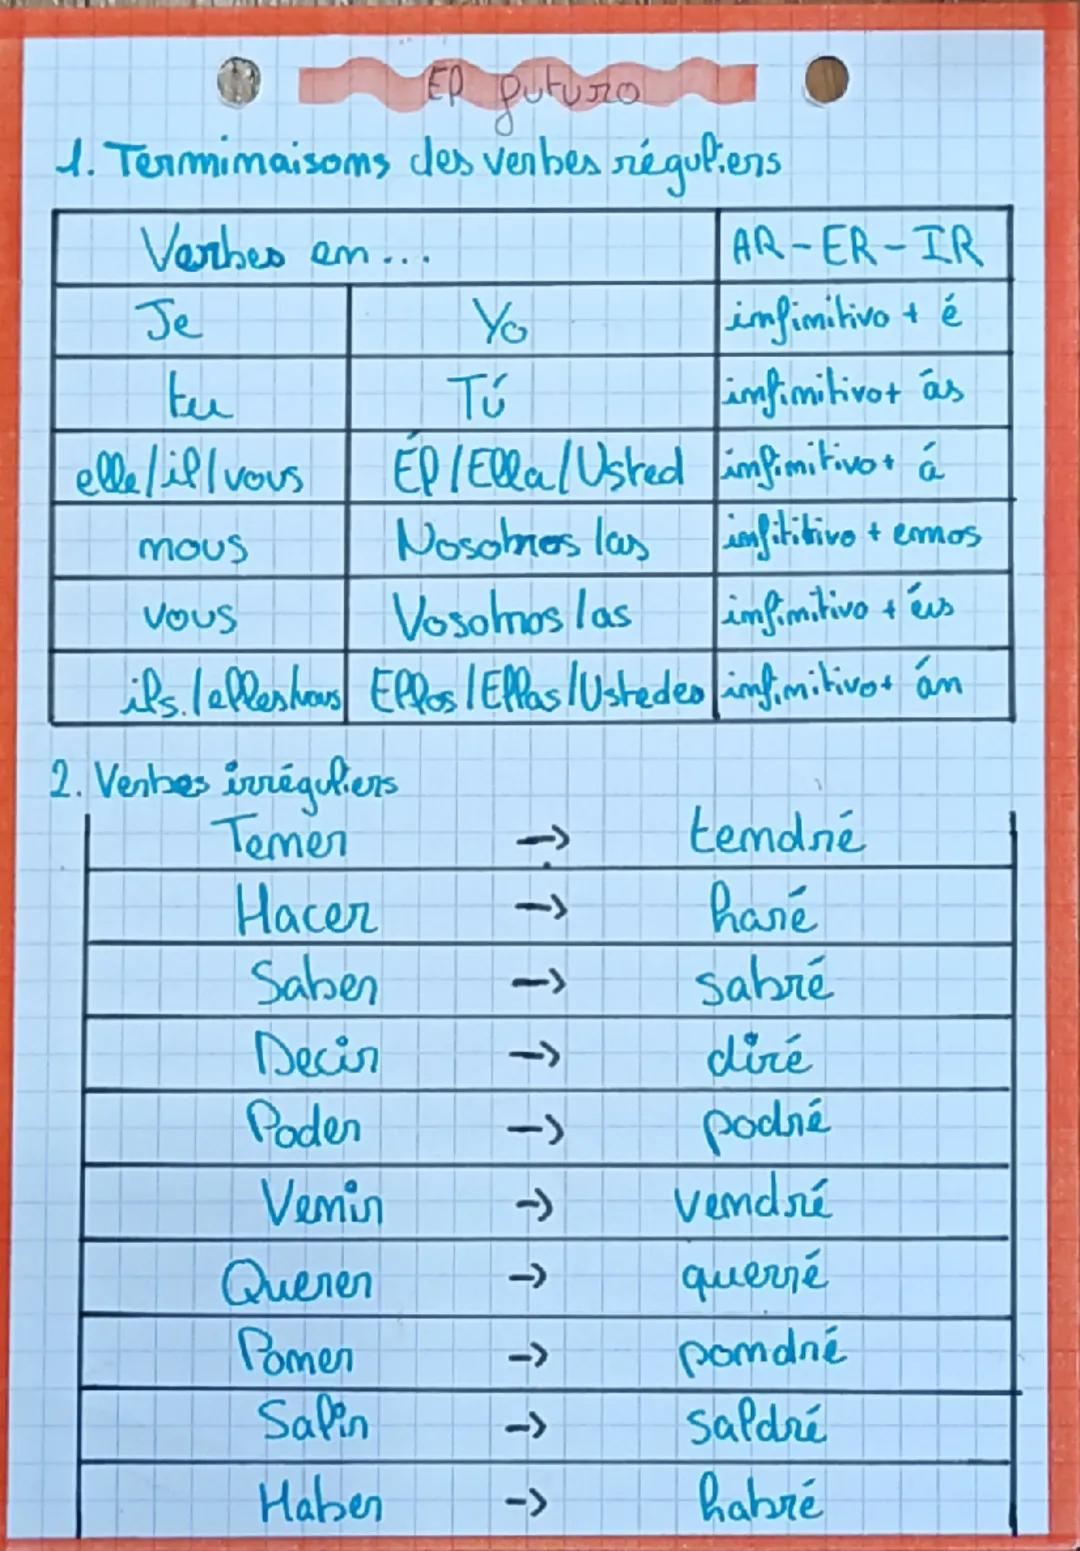 El futuro
1. Terminaisons des verbes réguliers
Verbes en... AR-ER-IR
Je Yo infinitivo + é
tu Tú infinitivo+ ás
elle/il/vous Él/Ella/Usted infinitivo+ á
nous Nosotros/as infititivo + emos
vous Vosotros/as infinitivo + éis
ils/elles/vous Ellos/Ellas/Ustedes infinitivo+ án
2. Verbes irréguliers
Tener -> tendré
Hacer -> haré
Saber -> sabré
Decir -> diré
Poder -> podré
Venir -> vendré
Querer -> querré
Poner -> pondré
Salir -> saldré
Haber -> habré